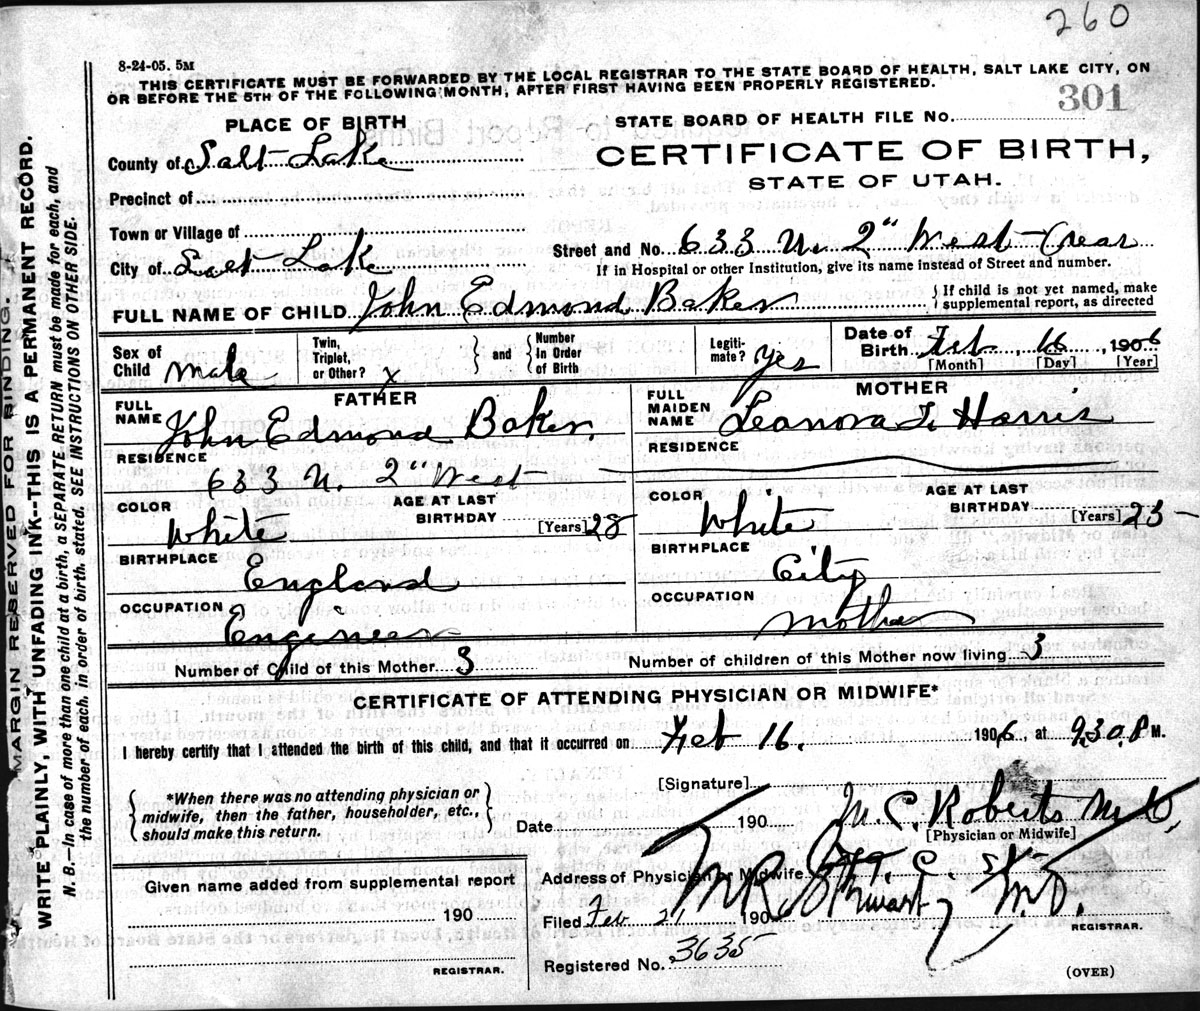 260
8-24-05. 5M
THIS CERTIFICATE MUST BE FORWARDED BY THE LOCAL REGISTRAR TO THE STATE BOARD OF HEALTH, SALT LAKE CITY, ON
OR BEFORE THE 5TH OF THE FOLLOWING MONTH, AFTER FIRST HAVING BEEN PROPERLY REGISTERED.
301
PLACE OF BIRTH
STATE BOARD OF HEALTH FILE No.
County of Salt Lake
CERTIFICATE OF BIRTH,
STATE OF UTAH.
Precinct of
Town or Village of
Street and No. 633 N. 2" West (rear
City of Salt Lake
If in Hospital or other Institution, give its name instead of Street and number.
FULL NAME OF CHILD John Edmond Baker
{ If child is not yet named, make
supplemental report, as directed
Sex of Child Male
Twin, Triplet, or Other? x } and { Number In Order of Birth
Legiti- mate? yes
Date of Birth Feb, 16, 1906
[Month] [Day] [Year]
FATHER
FULL NAME John Edmond Baker.
RESIDENCE
633 N. 2" West
COLOR White
AGE AT LAST BIRTHDAY [Years] 28
BIRTHPLACE
England
OCCUPATION
Engineer
MOTHER
FULL MAIDEN NAME Leanora T. Harris
RESIDENCE
COLOR White
AGE AT LAST BIRTHDAY [Years] 25
BIRTHPLACE City
OCCUPATION
Mother
Number of Child of this Mother 3
Number of children of this Mother now living 3
CERTIFICATE OF ATTENDING PHYSICIAN OR MIDWIFE*
I hereby certify that I attended the birth of this child, and that it occurred on Feb 16. 1906, at 9.30 P M.
{ *When there was no attending physician or
midwife, then the father, householder, etc.,
should make this return. }
[Signature] M. C. Roberts M.D,
Date 190
[Physician or Midwife]
Given name added from supplemental report
190
REGISTRAR.
Address of Physician or Midwife
Filed Feb 21 1906 Stewart M.D.
REGISTRAR.
Registered No. 3635
(OVER)
MARGIN RESERVED FOR BINDING.
WRITE PLAINLY, WITH UNFADING INK--THIS IS A PERMANENT RECORD.
N. B.—In case of more than one child at a birth, a SEPARATE RETURN must be made for each, and
the number of each, in order of birth, stated. SEE INSTRUCTIONS ON OTHER SIDE.